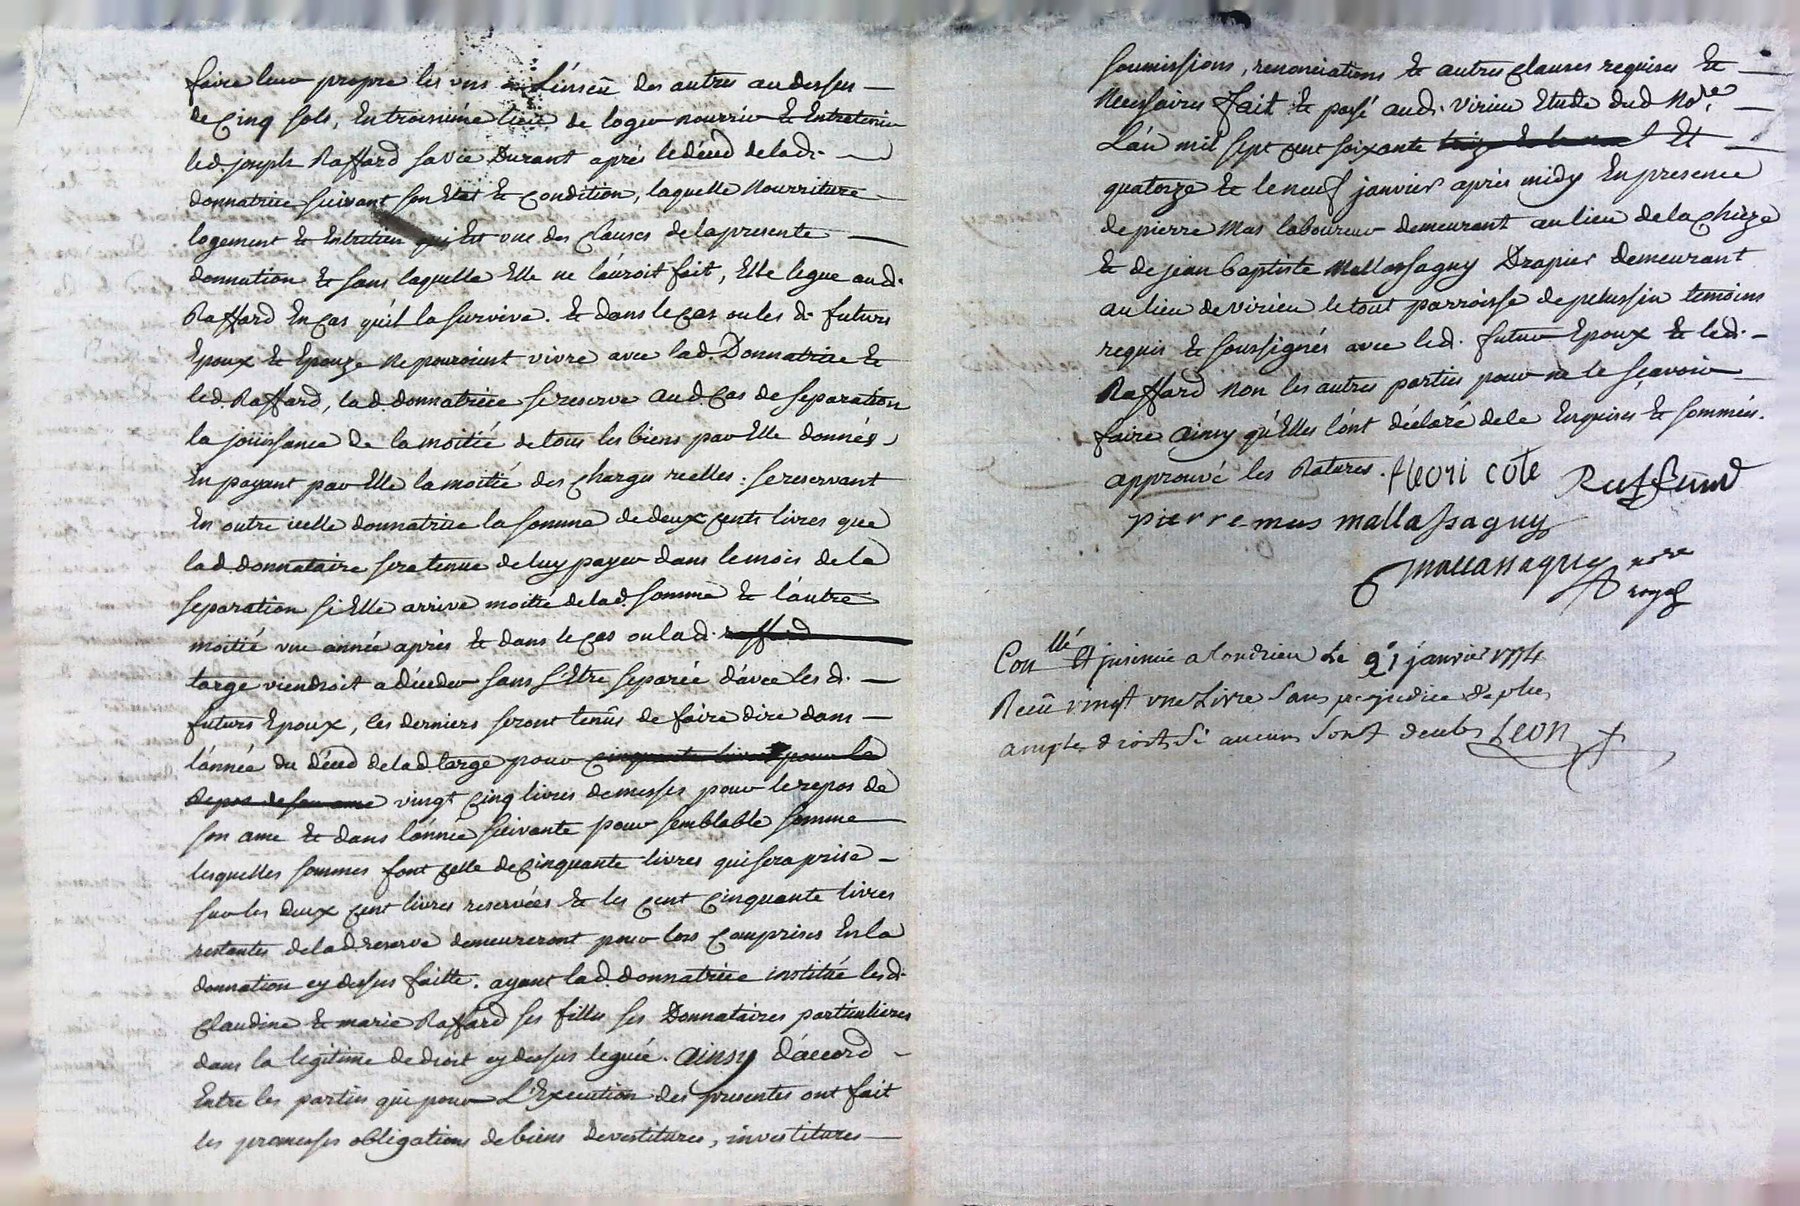 faire leur propre les uns à L'insçû des autres au dessus
de Cinq sols, En troisième lieu de loger nourrir & Entretenir
led. joseph Raffard sa vie Durant après le décéd de lad.
donnatrice suivant son Etat & Condition, laquelle Nourriture
logement & Entretien qui Est une des Clauses de la presente
donnation & sans laquelle Elle ne l'auroit fait, Elle legue aud.
Raffard En Cas qu'il la survive. & dans le Cas ou les d. futurs
Epoux & Epouze Ne pouroient vivre avec lad. Donnatrice &
led. Raffard, lad. donnatrice se reserve aud. Cas de Separation
la joüissance de la moitié de tous les biens par Elle donnés
En payant par Elle la moitié des Charges reelles: se reservant
En outre icelle donnatrice la somme de deux Cents livres que
lad. donnataire sera tenue de luy payer dans le mois de la
separation si Elle arrive moitié de lad. somme & l'autre
moitié une année après & dans le Cas ou la d. raffard
targe viendroit a déceder sans s'Etre separée d'avec les d.
futurs Epoux, les derniers seront tenûs de faire dire dans
l'année du décéd de lad. targe pour cinquante livres pour le
repos de son ame vingt Cinq livres de messes pour le repos de
son ame & dans l'année suivante pour semblable somme
lesquelles sommes font Celle de Cinquante livres qui sera prise
sur les deux Cent livres reservées & les Cent Cinquante livres
restantes de lad. reserve demeureront pour lors Comprises En la
donnation cy dessus faitte. ayant lad. donnatrice institué les d.
Claudine & marie Raffard ses filles ses Donnataires particulieres
dans la legitime de droit cy dessus leguée. Ainsy d'accord
Entre les parties qui pour L'Execution des presentes ont fait
les promesses obligations de biens devestitures, investitures
soumissions, renonciations & autres Clauses requises &
Necessaires fait & passé aud. virieu Etude dud. No.re
L'an mil sept cent soixante &
quatorze & le neuf janvier après midy En presence
de pierre Mas laboureur demeurant au lieu de la Chieze
& de jean baptiste Mallassagny Drapier demeurant
au lieu de virieu le tout parroisse de pelussin temoins
requis & soussignés avec led. futur Epoux & led.
Raffard Non les autres parties pour ne le sçavoir
faire Ainsy qu'Elles l'ont déclaré de ce Enquises & sommés.
approuvé les Ratures. Henri Cote Raffard
pierre mas mallassaguy
Mallassagny nore
royal
Con.llé & jnsinué a Condrieu Le 9e janvier 1774
Reçû vingt une Livre sans prejudice de plus
amples droits si aucuns sont deubs Leon